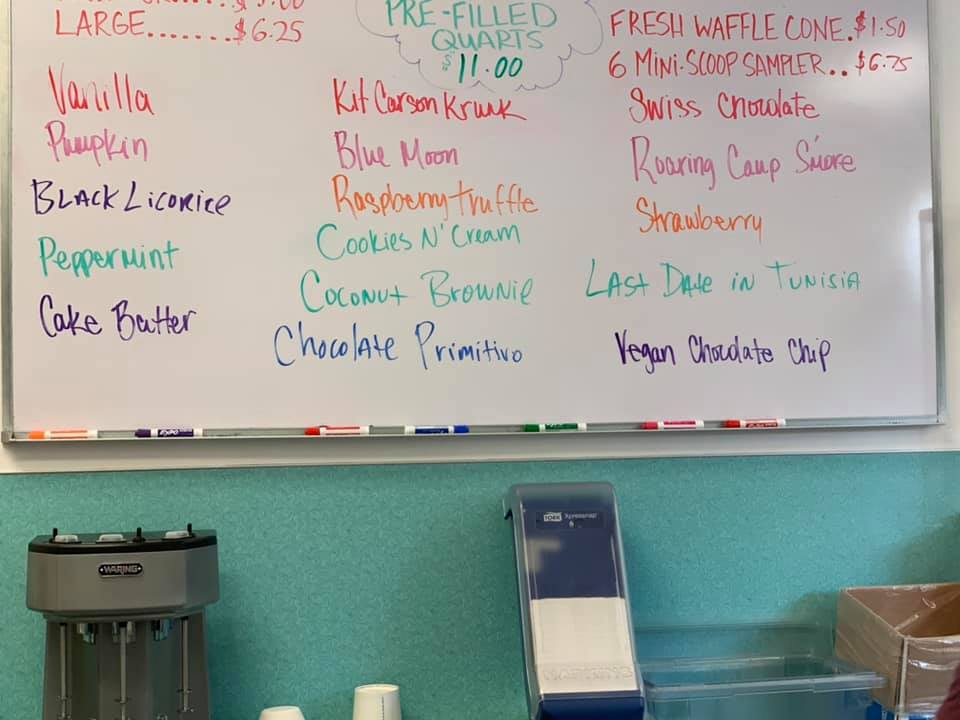 LARGE.......$6.25
PRE-FILLED
QUARTS
$11.00
FRESH WAFFLE CONE.$1.50
6 MINI-SCOOP SAMPLER..$6.75
Vanilla
Pumpkin
BLACK LICORICE
PEPPERMINT
Cake Batter
Kit Carson Krunk
Blue Moon
Raspberry truffle
Cookies N' Cream
Coconut Brownie
Chocolate Primitivo
Swiss Chocolate
Roaring Camp S'more
Strawberry
LAST DATE IN TUNISIA
Vegan Chocolate Chip
WARING
TORK Xpressnap